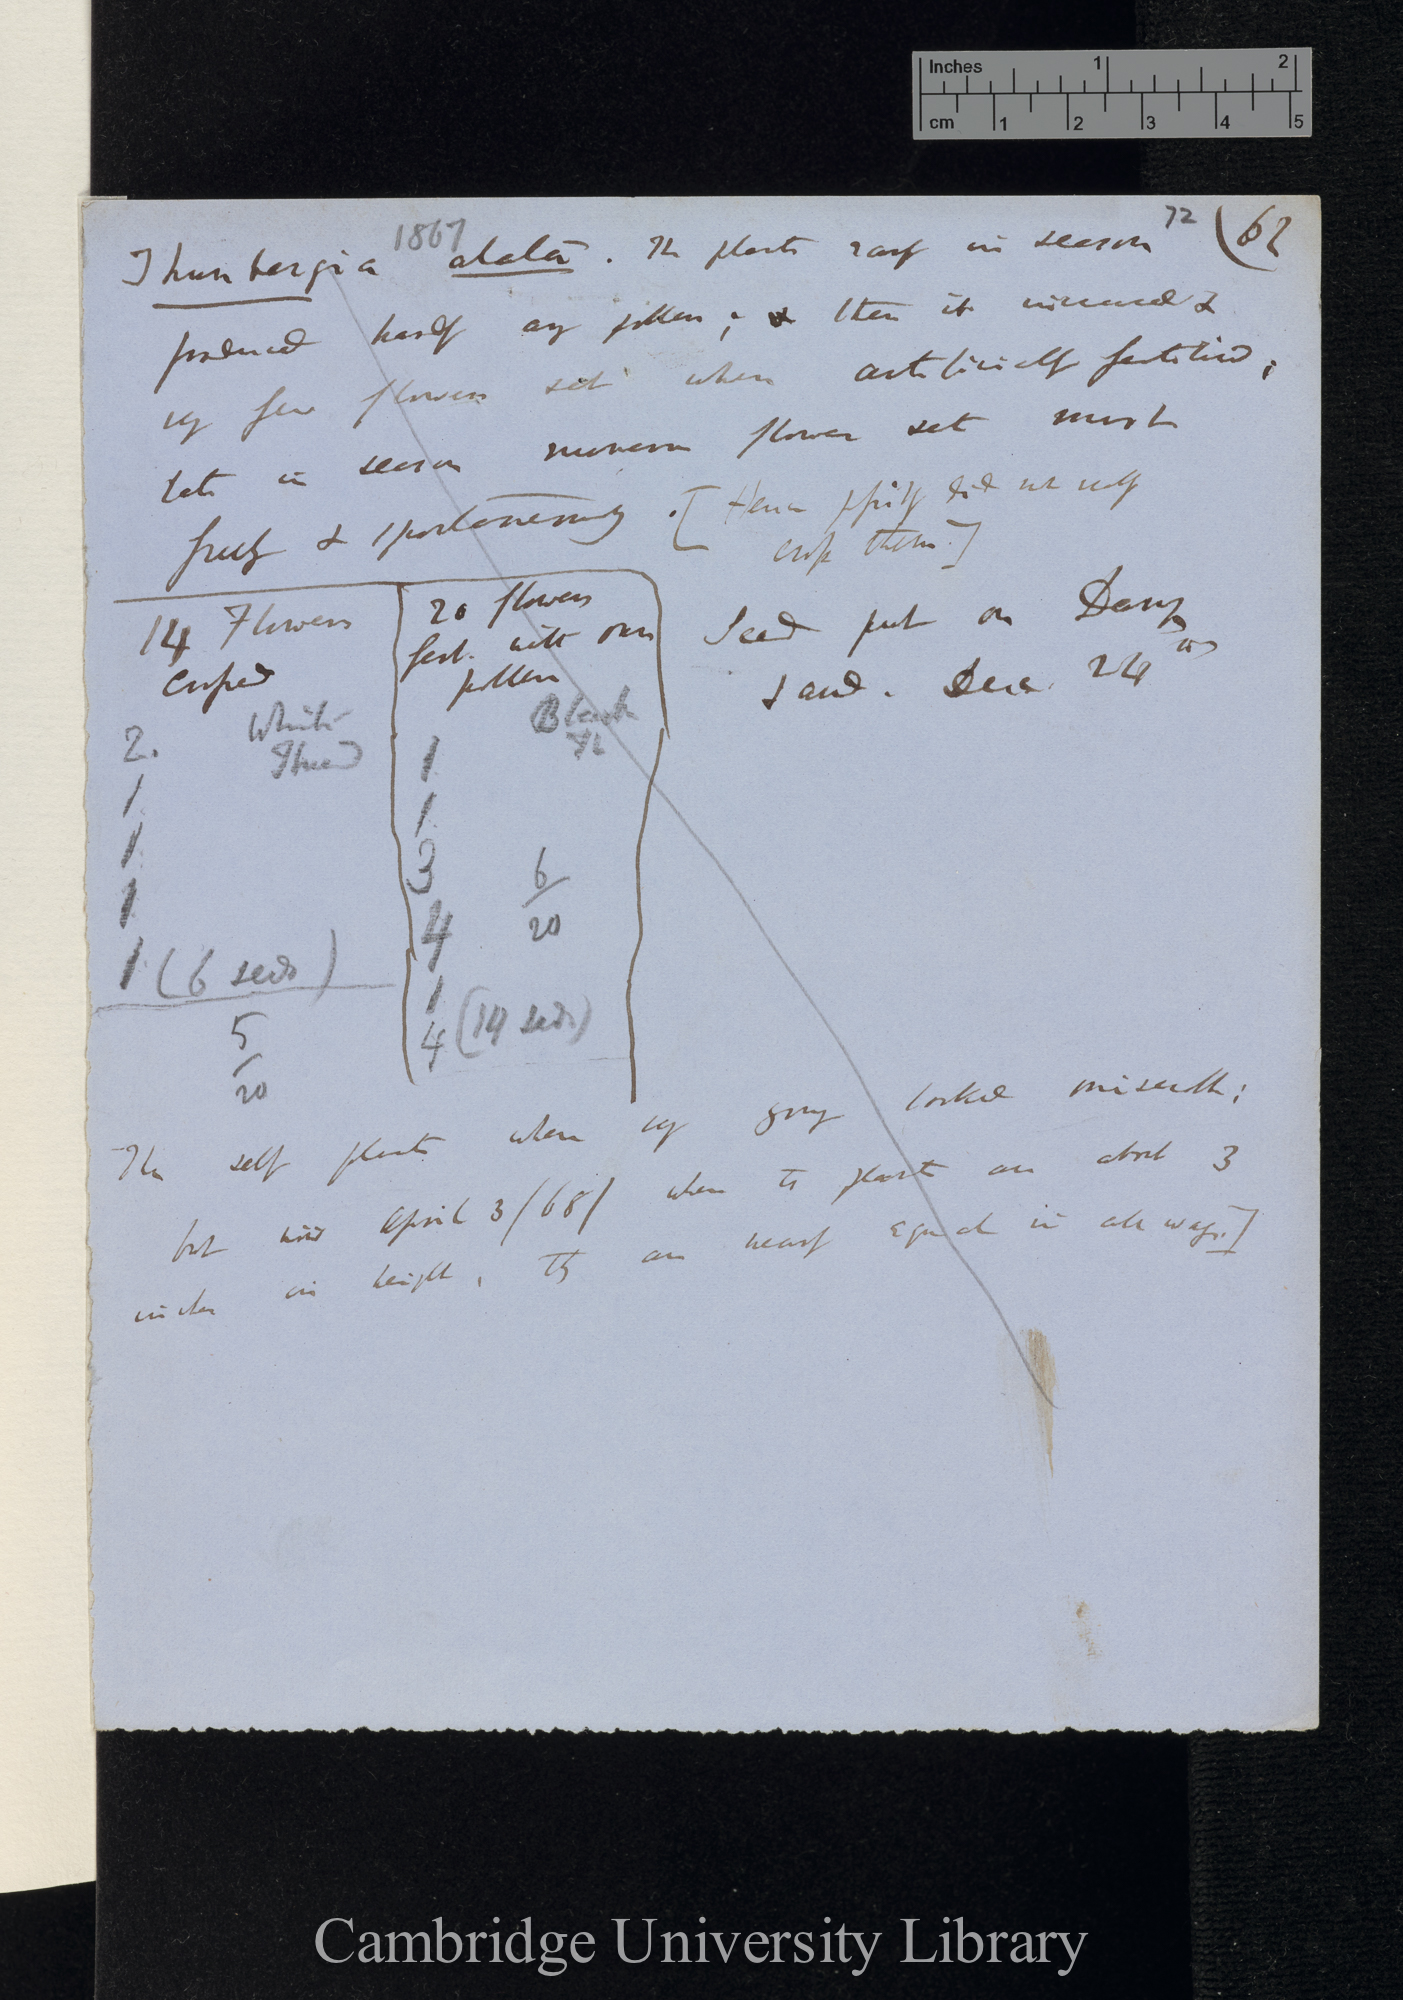 Inches 1 2
cm 1 2 3 4 5
1867 72 (62
Thunbergia alata. The plants early in season
produced hardly any pollen; & then it increased &
very few flowers set when artificially fertilised;
late in season numerous flowers set most
freely & spontaneously. [Hence did not really
crop them.]
14 Flowers
crossed
White
Thread
2.
1
1
1
1 (6 seeds)
5/20
20 flowers
fert. with own
pollen
Black
Th
1
1
3
4
1
4 (14 seeds)
6/20
Seed put on Damp
sand. Dec. 24th
The self plants when very young looked miserable;
but now April 3/68/ when the plants are about 3
inches in height, they are nearly equal in all ways.]
Cambridge University Library